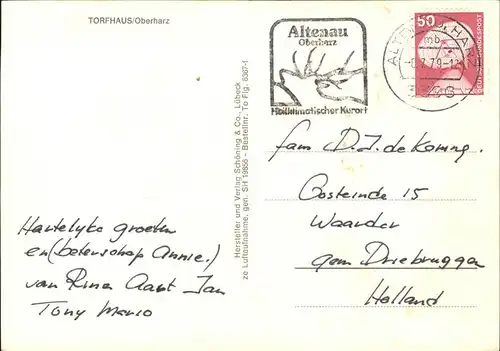 TORFHAUS/Oberharz
Altenau
Oberharz
Heilklimatischer Kurort
50
DEUTSCHE BUNDESPOST
Hersteller und Verlag Schöning & Co., Lübeck
ze Luftaufnahme, gen. SH 19856 - Bestellnr. To Fig. 6367-1
fam D.J. de Koning.
Oosteinde 15
Waarder
gem Driebruggen
Holland
Hartelyke groeten
en (beterschap Annie.)
van Rina Aart Jan
Tony Mario